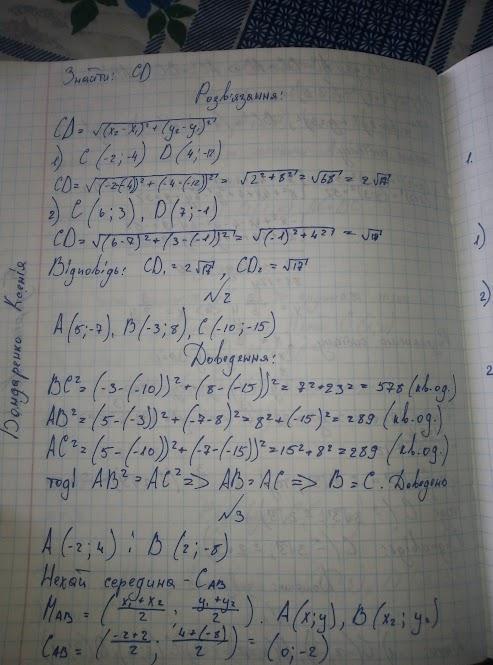 Знайти: CD
Розв'язання:
CD = √((x₂ - x₁)² + (y₂ - y₁)²)
1) C (-2; -4) D (4; -12)
CD = √((-2-4)² + (-4-(-12))²) = √(2² + 8²) = √68 = 2√17
2) C (6; 3), D (7; -1)
CD = √((6-7)² + (3-(-1))²) = √((-1)² + 4²) = √17
Відповідь: CD₁ = 2√17, CD₂ = √17
№2
A (5; -7), B (-3; 8), C (-10; -15)
Доведення:
BC² = (-3-(-10))² + (8-(-15))² = 7² + 23² = 578 (кв.од.)
AB² = (5-(-3))² + (-7-8)² = 8² + (-15)² = 289 (кв.од.)
AC² = (5-(-10))² + (-7-(-15))² = 15² + 8² = 289 (кв.од.)
тоді AB² = AC² => AB = AC => B = C. Доведено
№3
A (-2; 4) і B (2; -8)
Нехай середина - C_AB
M_AB = (x₁ + x₂ / 2 ; y₁ + y₂ / 2). A (x; y), B (x₂; y₂)
C_AB = (-2+2 / 2 ; 4+(-8) / 2) = (0; -2)
Бондаренко Ксенія
1.
1)
2)
2